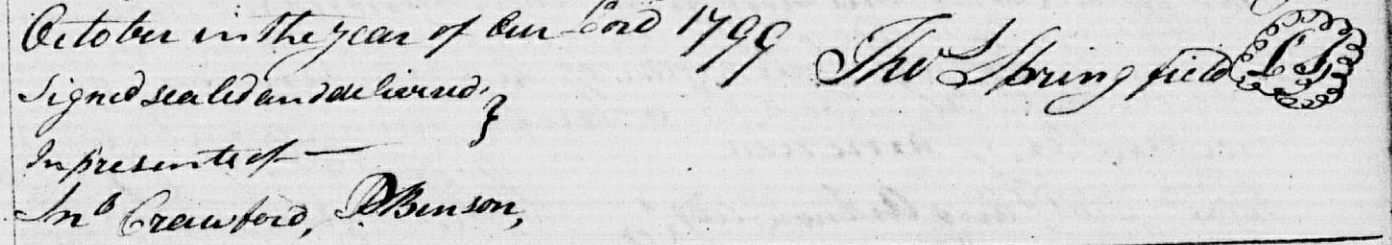 October in the year of Our Lord 1799
Thos Springfield LS
Signed sealed and delivered
In presents of —
Jno Crawford, P Benson,